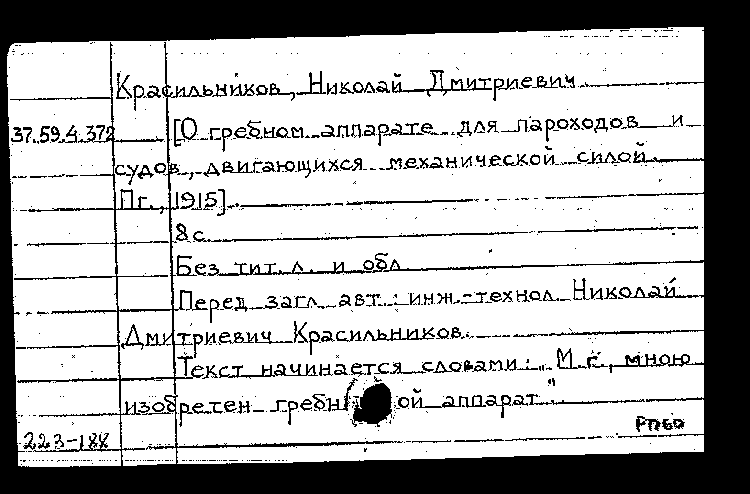 Красильников, Николай Дмитриевич
37.59.4.372 [О гребном аппарате для пароходов и
судов, двигающихся механической силой.
Пг., 1915].
8с.
Без тит. л. и обл.
Перед загл. авт.: инж.-технол. Николай
Дмитриевич Красильников.
Текст начинается словами: „М.г., мною
изобретен гребной аппарат".
223-188